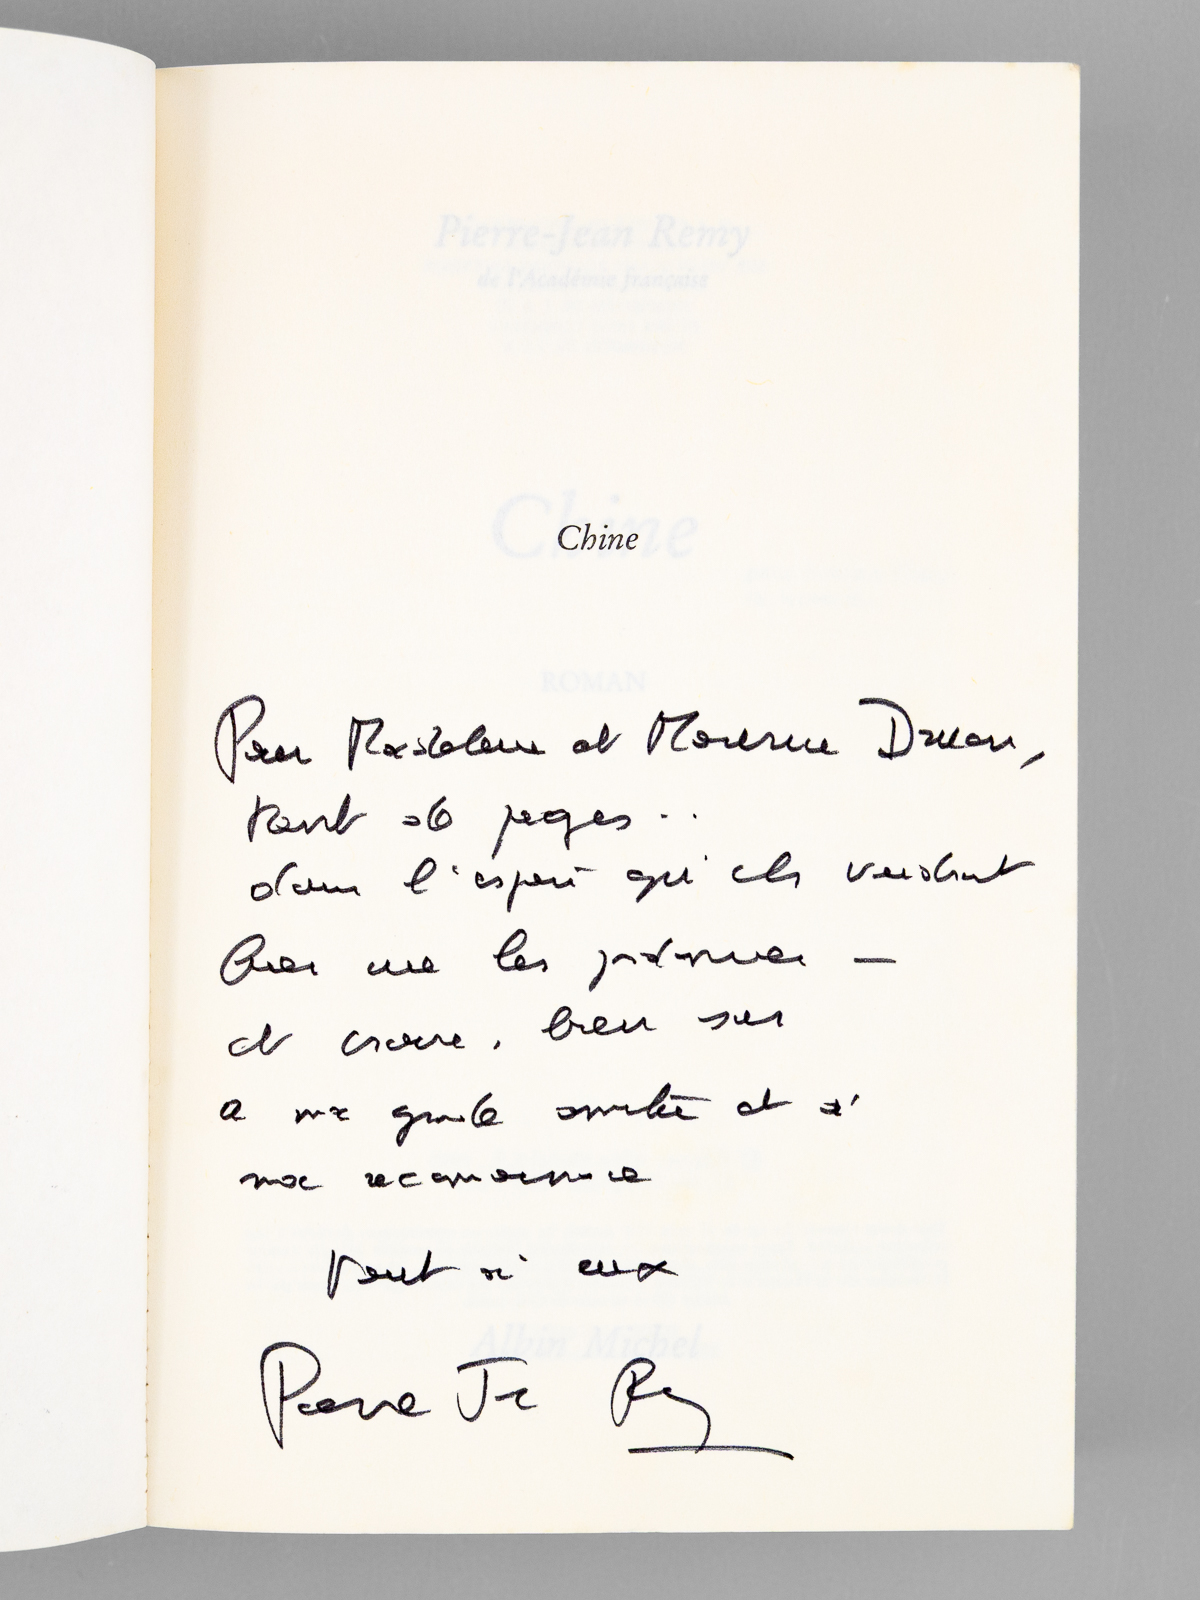 Pierre-Jean Remy
de l'Académie française
Chine
Chine
ROMAN
Pour Madeleine et Maurice Druon,
tant de pages...
dans l'espoir qu'ils voudront
bien me les pardonner —
et croire, bien sûr
à ma grande amitié et à
ma reconnaissance
tout à eux
Albin Michel
Pierre Jn Remy